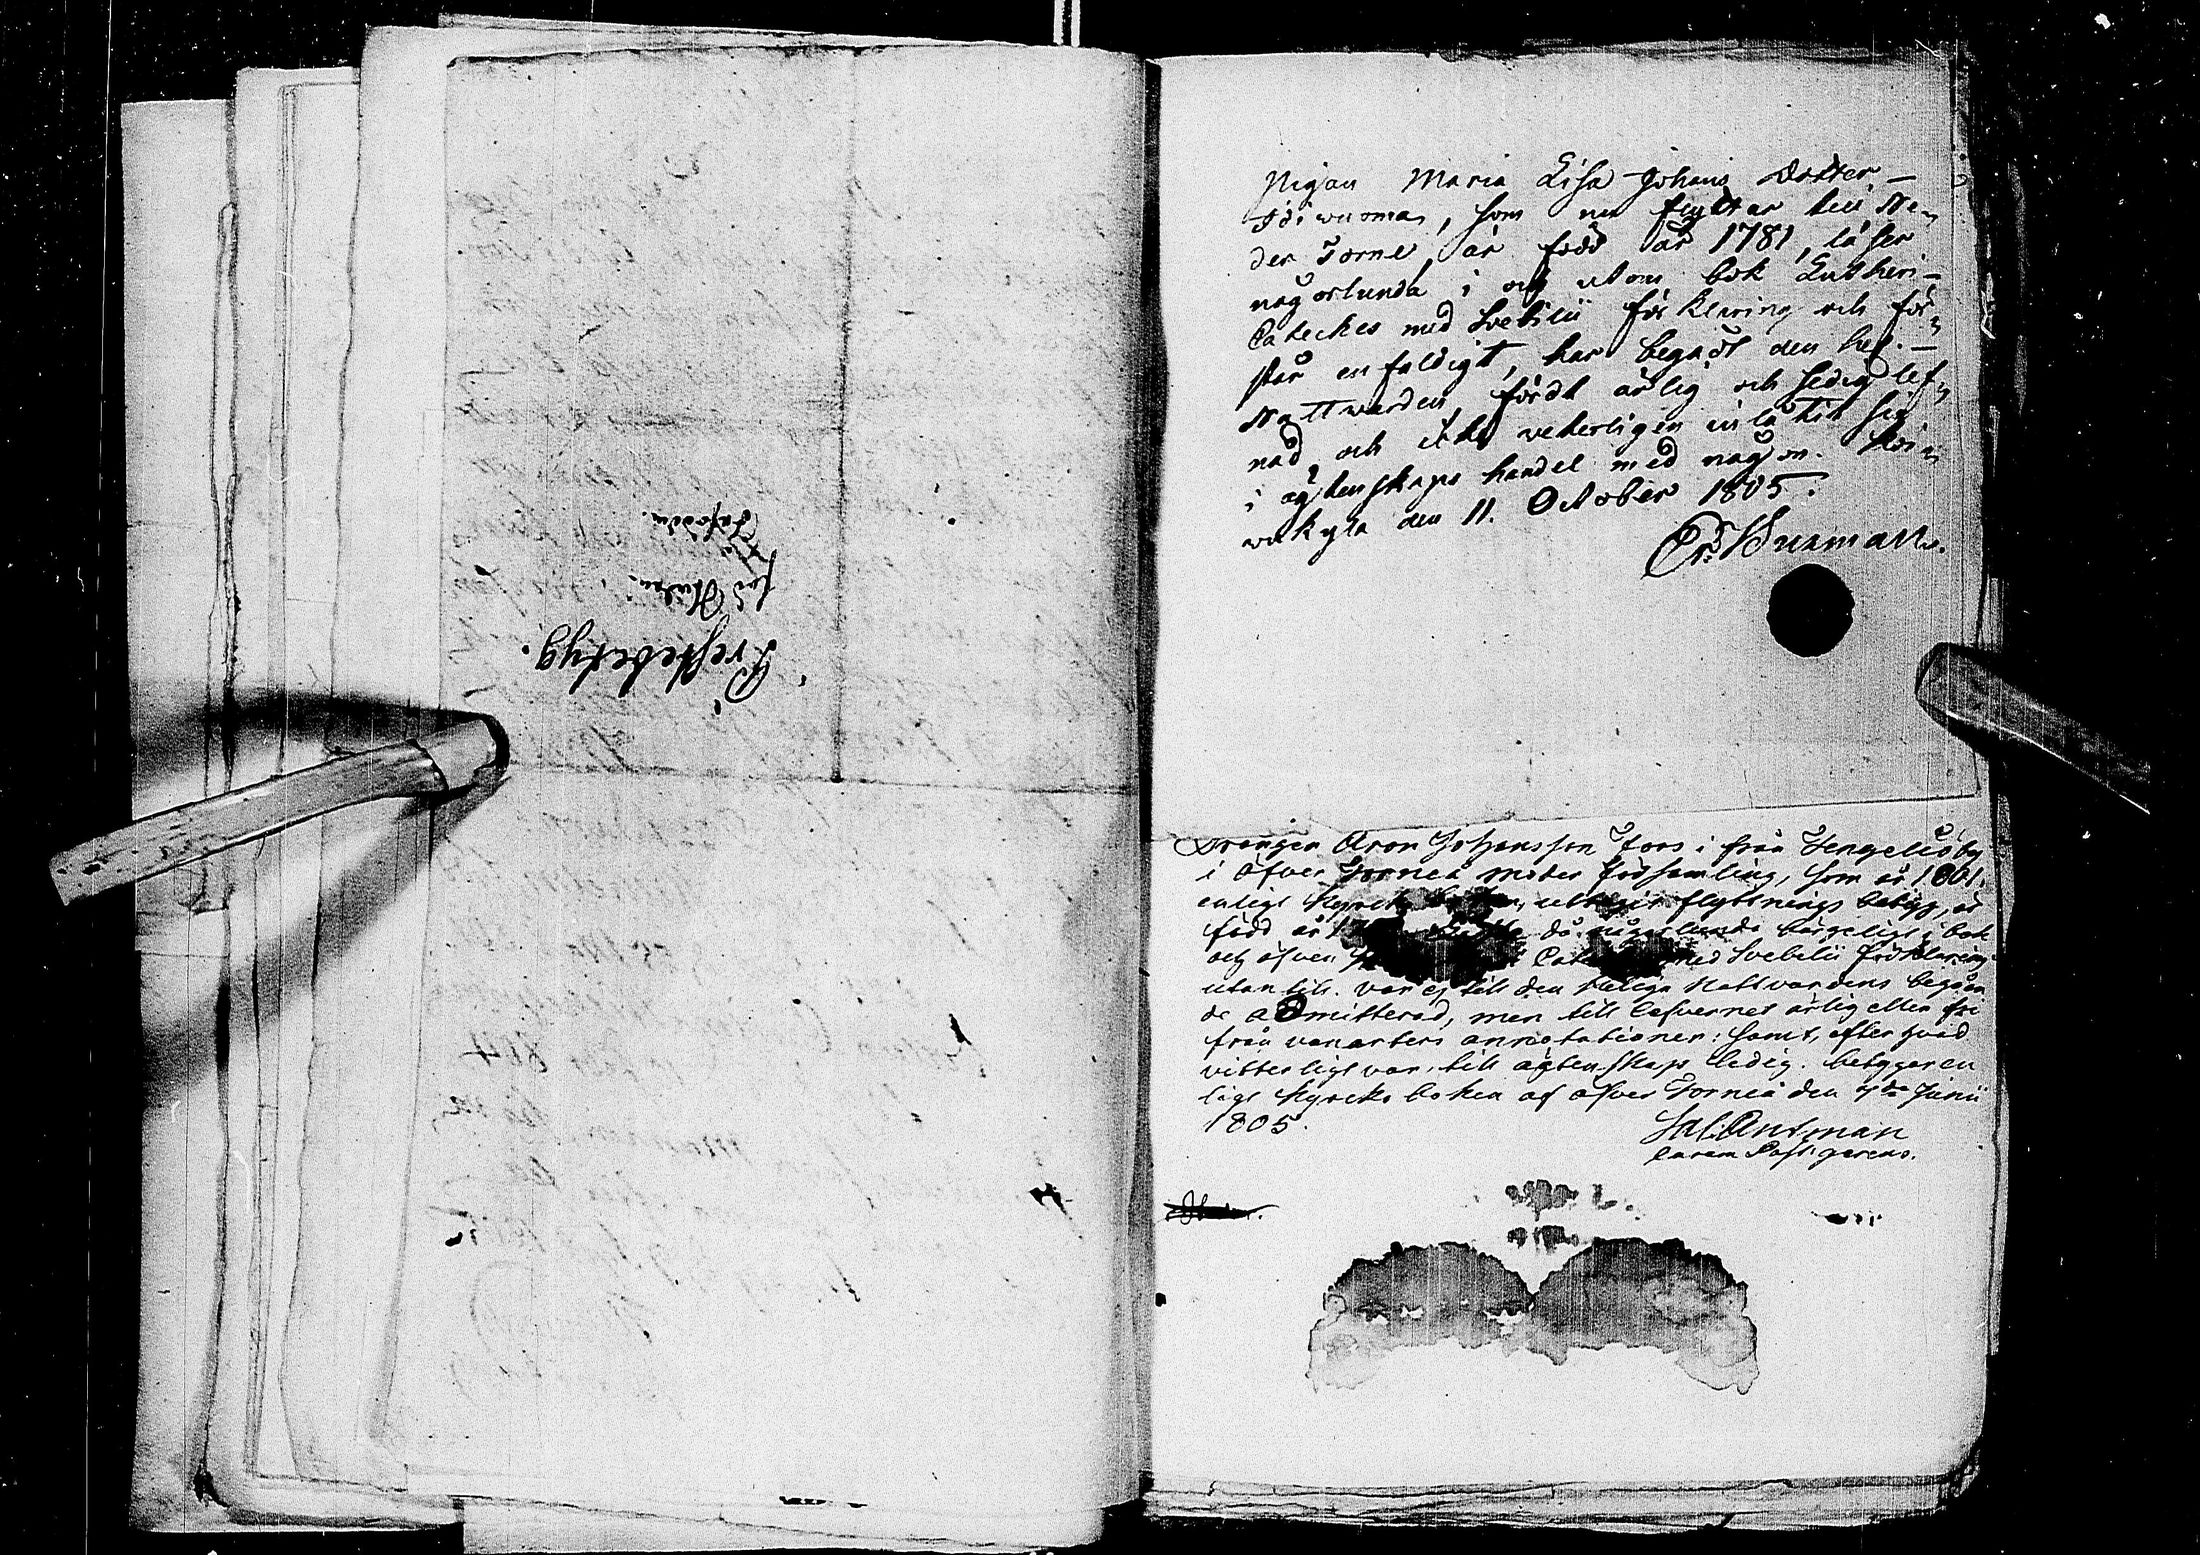 Prestebetyg.
för
Pigan Maria Lisa Johans Dotter
som nu flyttar till Ne„
der Torne, är född år 1781, läser
någorlunda i och utom bok Lutheri
Cateches med Svebilii förklaring och för„
står enfaldigt, har begådt den hel.
Nattwarden, fördt ärlig och sedig lef„
nad, och icke veterligen inlåtit sig
i ägtenskaps handel med någon. Koi„
wukyla den 11. October 1805.
Er. Burman.
Drengen Aron Johansson Foos i från Hengelis by
i Öfver Torneå moder församling, som år 1801.
enligt Kyrcko uttagit flyttnings betyg, är
född år 1 då någorlunda bärgeligt i bok
och öfven med Svebilii förklaring
utantill. var ej till den heliga Nattvardens begåen
de admitterad, men till lefvernet ärlig eller fri
från vanarters annotationer: samt, efter hvad
vitterligt var, till ägtenskap ledig. betygar en
ligt Kyrcko boken af Öfver Torneå den 7de Junii
1805.
Joh: Antman
Curam Past: gerens.